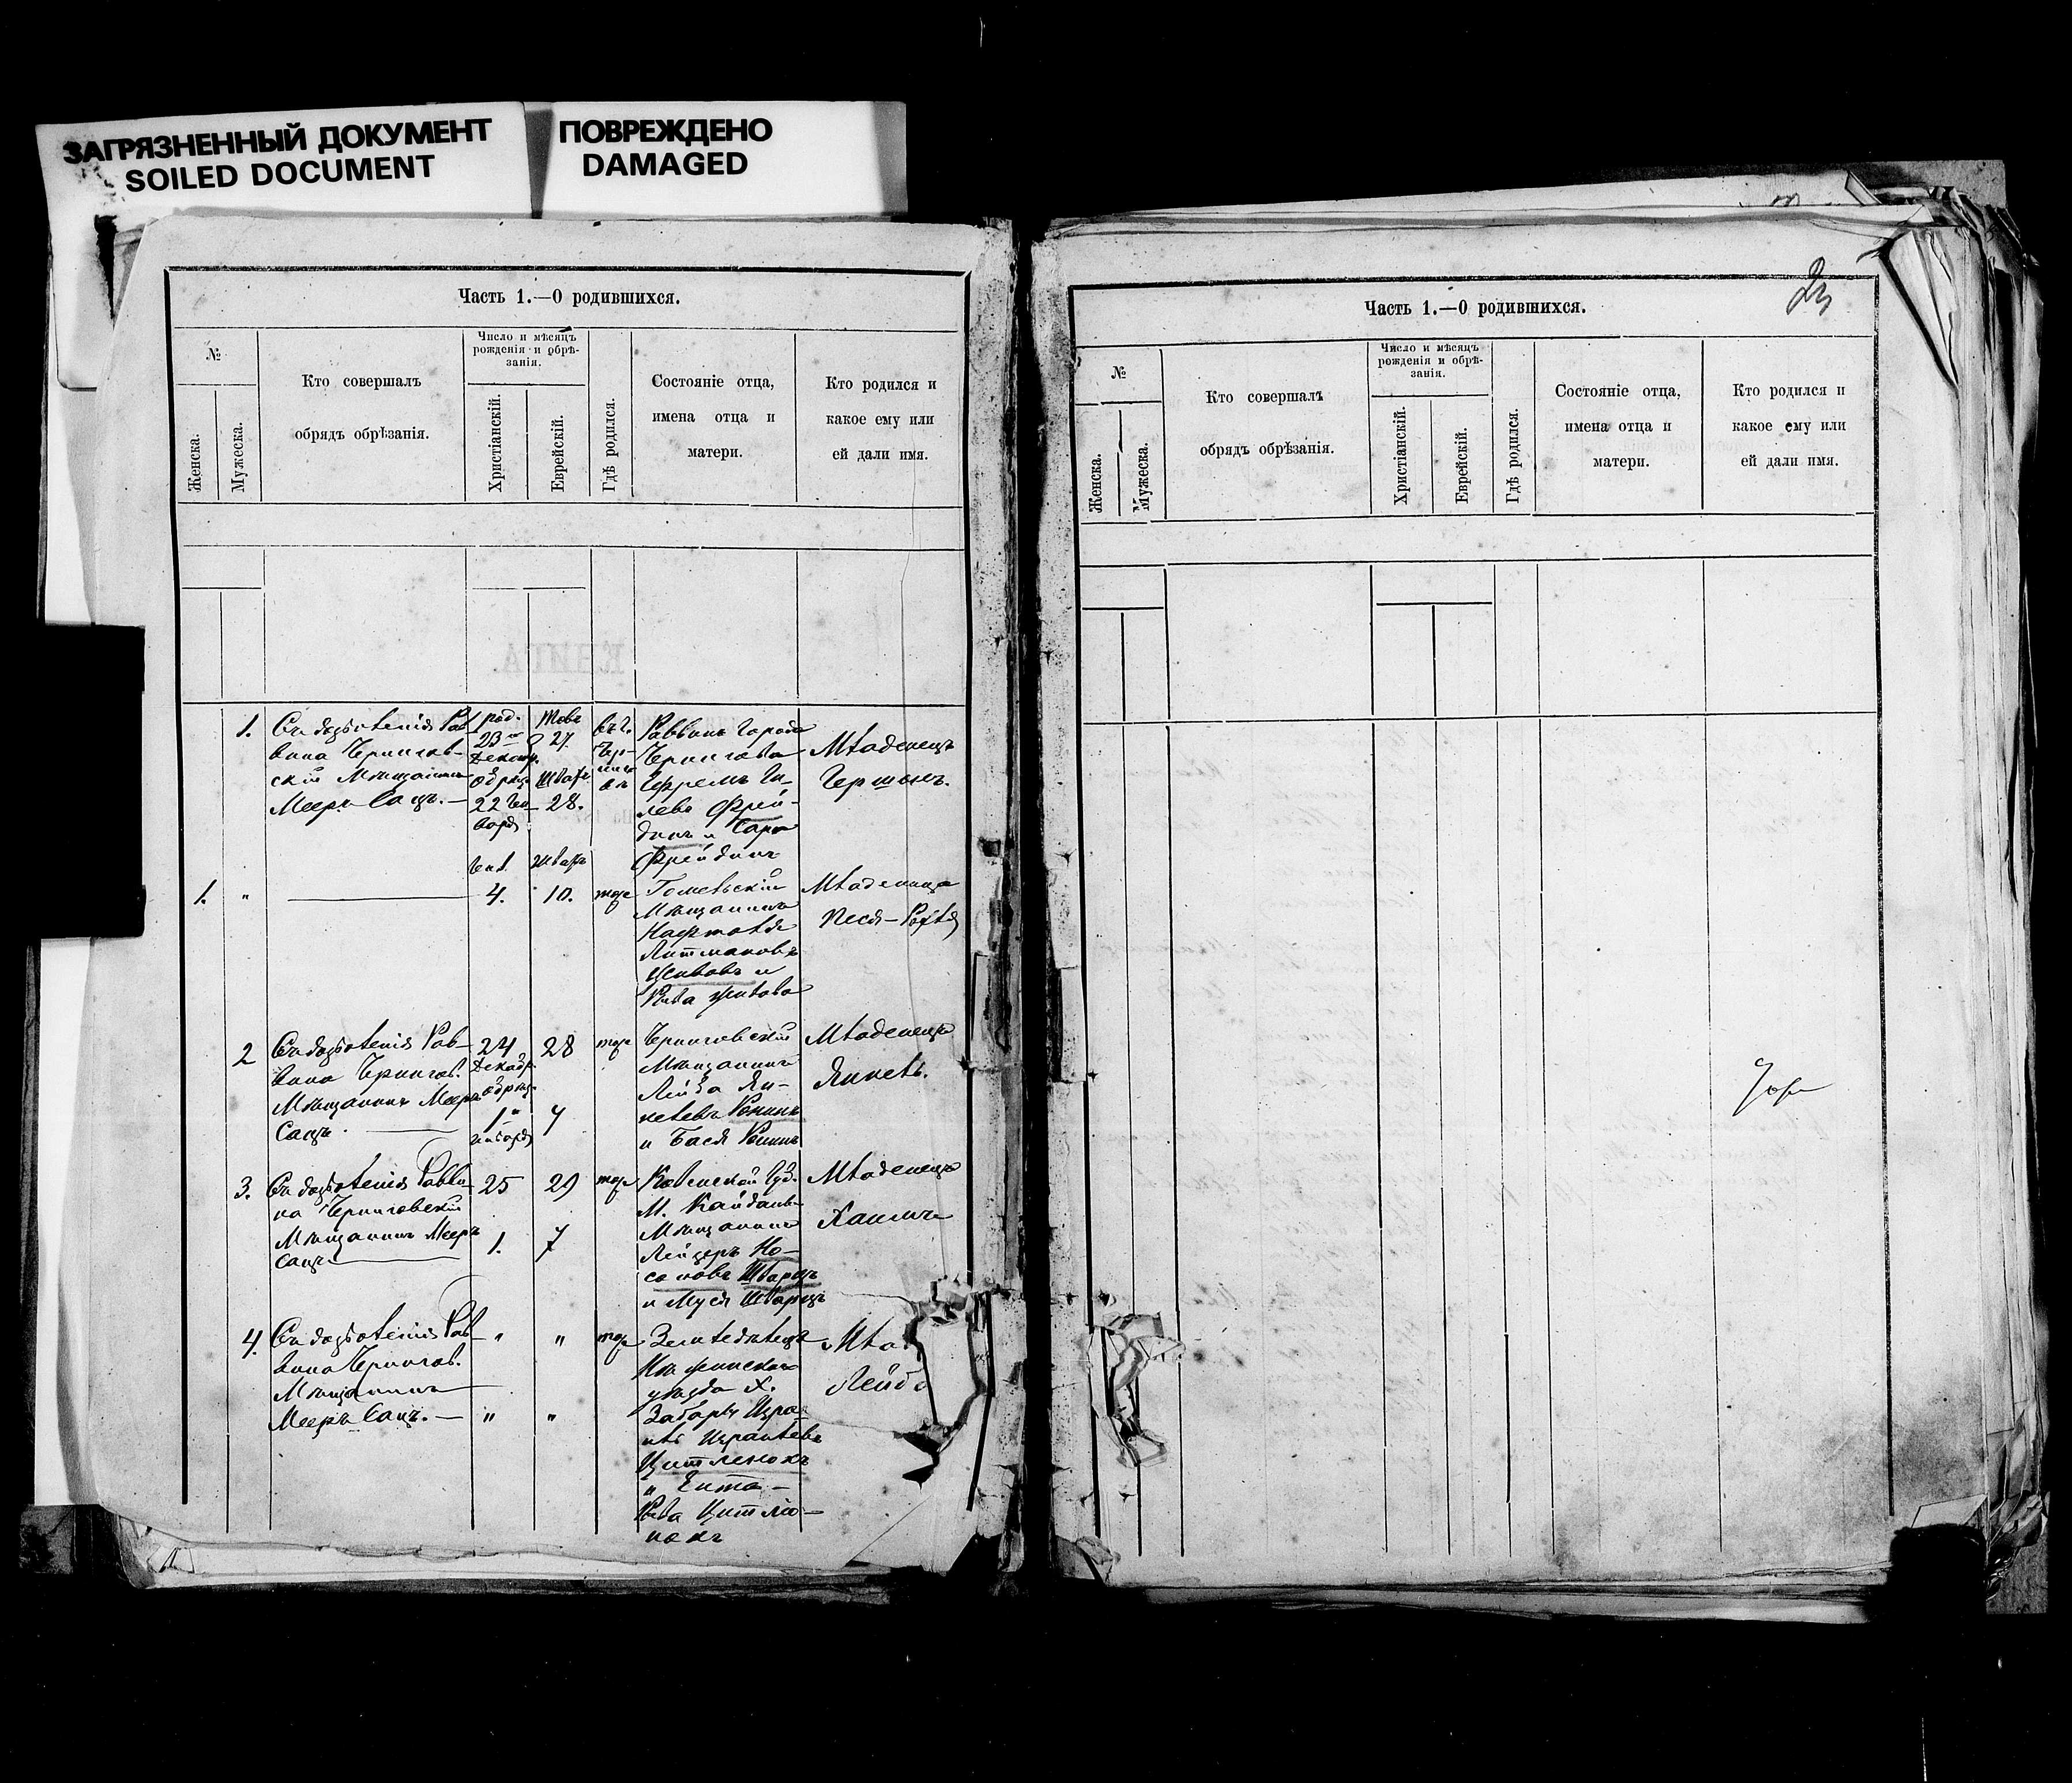 ЗАГРЯЗНЕННЫЙ ДОКУМЕНТ
SOILED DOCUMENT
ПОВРЕЖДЕНО
DAMAGED
Часть 1.—О родившихся.
№
Женска.
Мужеска.
Кто совершалъ
обрядъ обрѣзанія.
Число и мѣсяцъ
рожденія и обрѣ-
занія.
Христіанскій.
Еврейскій.
Гдѣ родился.
Состояніе отца,
имена отца и
матери.
Кто родился и
какое ему или
ей дали имя.
1.
Съ дозволенія Рав
вина Чернигов-
скій Мѣщанинъ
Мееръ Сацъ.—
род.
23
Декаб.
обрѣз
22
Товъ
27.
Шватъ
28.
въ г.
Чер-
ниго
вѣ
Раввинъ города
Чернигова
Эфремъ
Фрей-
динъ и Сара
Фрейдинъ
Младенецъ
Гершонъ.
1.
"
Янв.
4.
Шватъ
10.
тоже
Гомельскій
Мѣщанинъ
Нафтоля
Литмановъ
и
Рива
Младеница
Песя—
2
Съ дозволенія Рав-
вина Чернигов.
Мѣщанинъ Мееръ
Сацъ.
24
Декабр.
обрѣз.
1
января
28
7
тоже
Черниговскій
Мѣщанинъ
Лейба Ян-
келевъ
и Бася
Младенецъ
Янкель.
3.
Съ дозволенія Равви-
на Черниговскій
Мѣщанинъ Мееръ
Сацъ
25
1.
29
7
тоже
Ковенской Губ.
М. Кайданъ
Мѣщанинъ
Лейзеръ Но-
соновъ Шварцъ
и Муся Шварцъ
Младенецъ
4.
Съ дозволенія Рав-
вина Чернигов.
Мѣщанинъ
Мееръ Сацъ.—
"
"
"
"
тоже
Земледѣлецъ
Нѣжинскаго
уѣзда Х.
Изра-
иль Израилевъ
Цитленокъ
и Ента-
Рива Цитлю-
нокъ
Мла
Лейб
Часть 1.—О родившихся.
№
Женска.
Мужеска.
Кто совершалъ
обрядъ обрѣзанія.
Число и мѣсяцъ
рожденія и обрѣ-
занія.
Христіанскій.
Еврейскій.
Гдѣ родился.
Состояніе отца,
имена отца и
матери.
Кто родился и
какое ему или
ей дали имя.